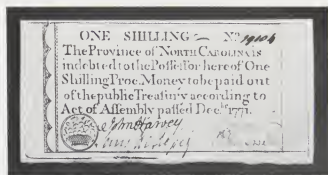 ONE SHILLING No. 19104
The Province of NORTH CAROLINA is
indebted to the Possessor hereof One
Shilling Proc. Money to be paid out
of the public Treasury according to
Act of Assembly passed Dec. 1771.
John Harvey